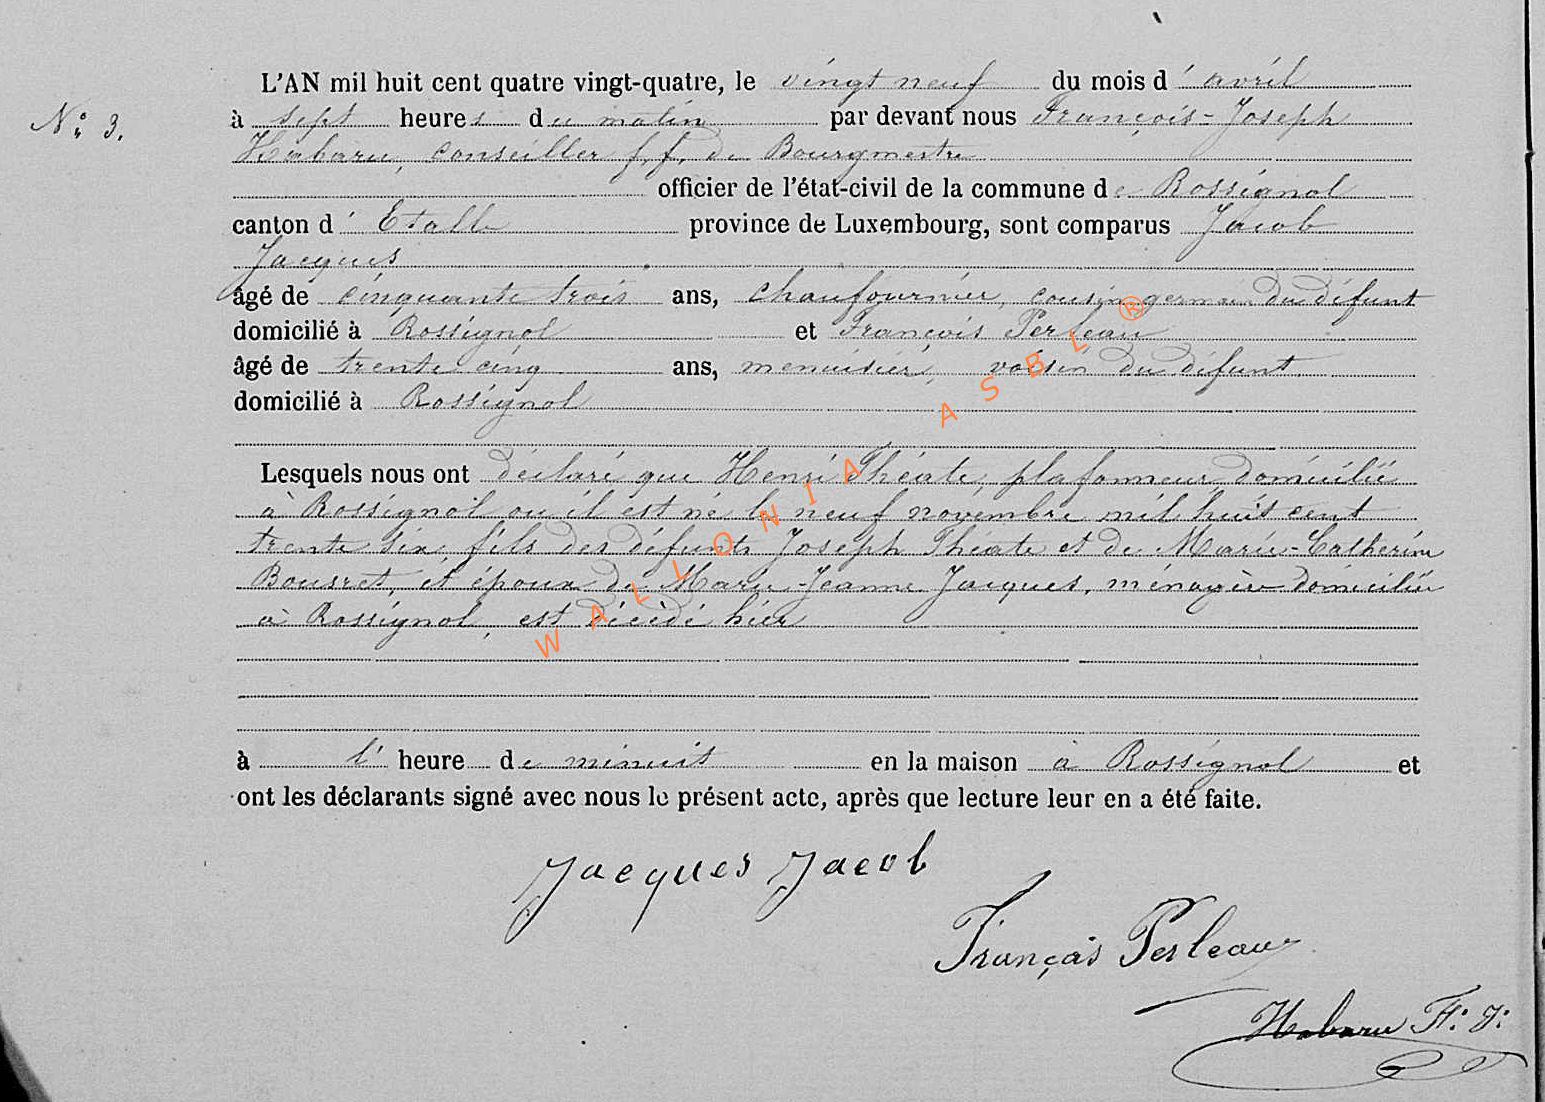 L'AN mil huit cent quatre vingt-quatre, le vingt neuf du mois d' avril
N° 3.
à sept heures du matin par devant nous François-Joseph
Habaru, conseiller f.f. de Bourgmestre
officier de l'état-civil de la commune de Rossignol
canton d' Etalle province de Luxembourg, sont comparus Jacob
Jacques
âgé de cinquante trois ans, chaufournier, cousin germain du défunt
domicilié à Rossignol et François Perleau
âgé de trente cinq ans, menuisier, voisin du défunt
domicilié à Rossignol
Lesquels nous ont déclaré que Henri Théate, plafonneur, domicilié
à Rossignol où il est né le neuf novembre mil huit cent
trente six, fils des défunts Joseph Théate et de Marie-Catherine
Bousret, et époux de Marie-Jeanne Jacques, ménagère domiciliée
à Rossignol, est décédé hier
à l' heure de minuit en la maison à Rossignol et
ont les déclarants signé avec nous le présent acte, après que lecture leur en a été faite.
Jacques Jacob
François Perleaux
Habaru F: J:
WALLONIA ASBL ®